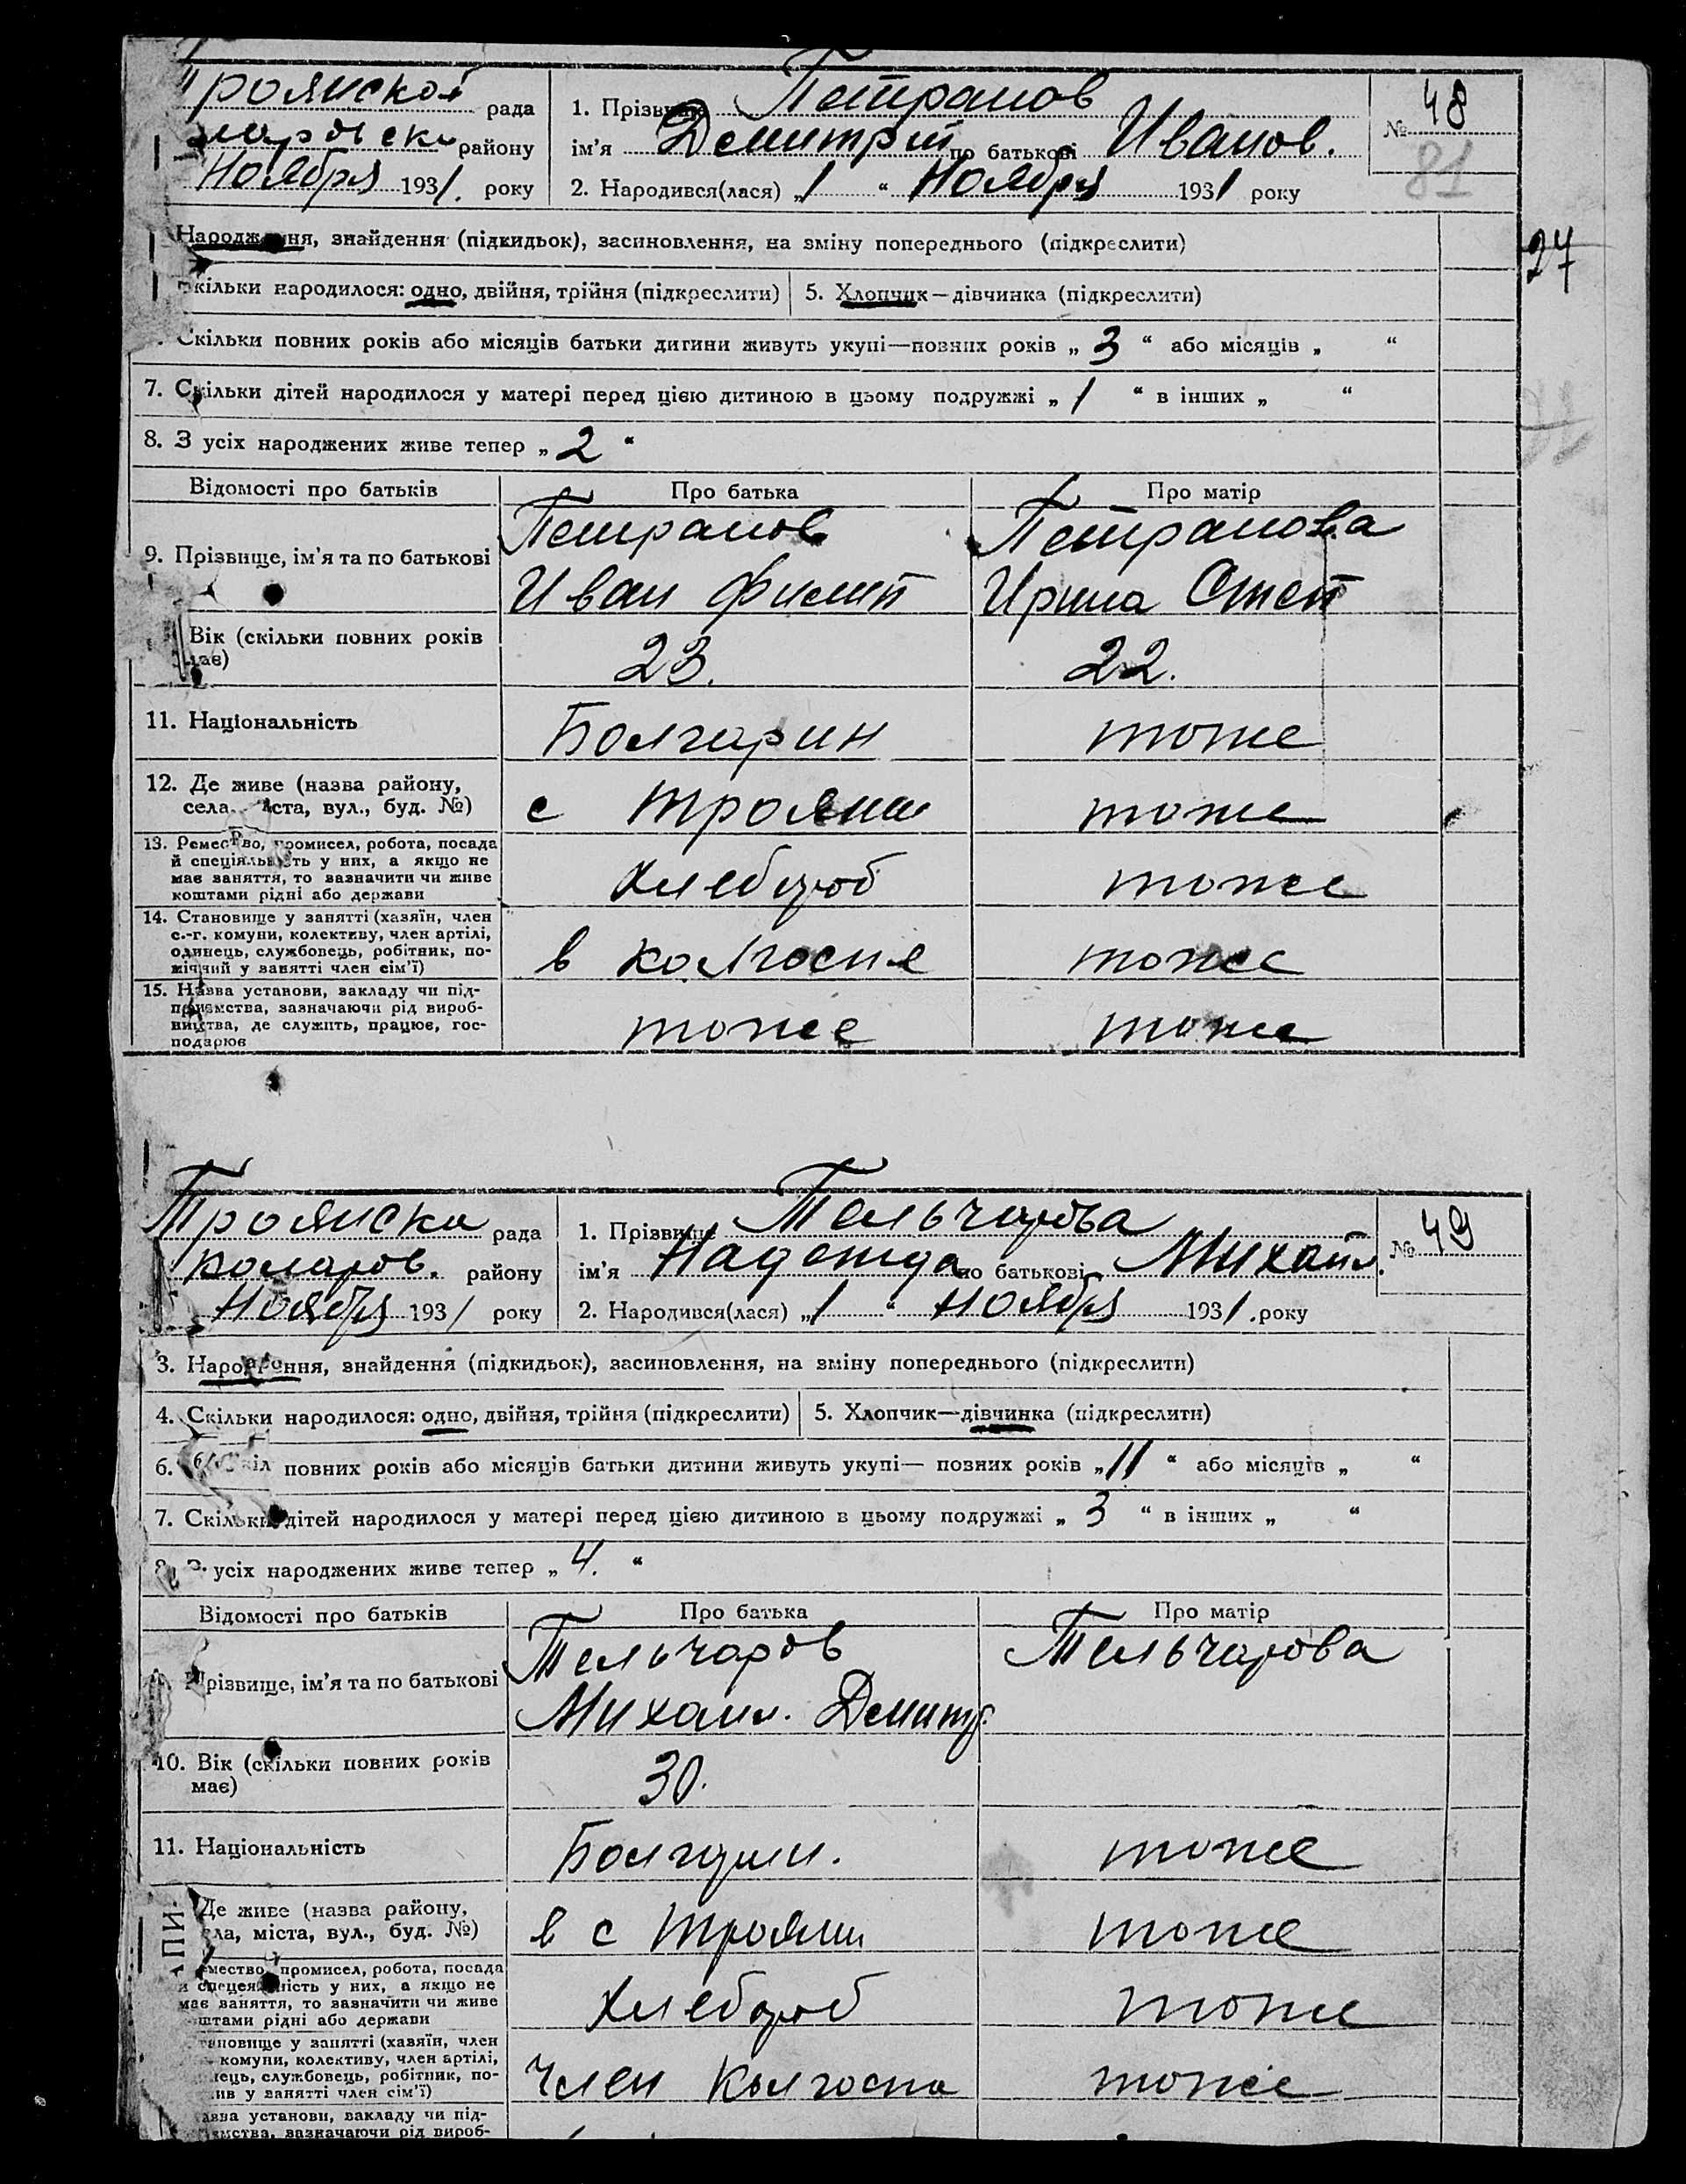 Троянской рада
района
Ноября 1931. року
1. Прізвище Петранов
ім'я Демитрий по батькові Иванов.
2. Народився(лася) „1“ Ноября 1931 року
№ 48
81
27
Народження, знайдення (підкидьок), засиновлення, на зміну попереднього (підкреслити)
Скільки народилося: одно, двійня, трійня (підкреслити) 5. Хлопчик—дівчинка (підкреслити)
Скільки повних років або місяців батьки дитини живуть укупі—повних років „3“ або місяців „ “
7. Скільки дітей народилося у матері перед цією дитиною в цьому подружжі „1“ в інших „ “
8. З усіх народжених живе тепер „2“
Відомості про батьків Про батька Про матір
Петранов Петранова
9. Прізвище, ім'я та по батькові
Иван Филип Ирина Степ
Вік (скільки повних років має) 23. 22.
11. Національність Болгарин тоже
12. Де живе (назва району,
села, міста, вул., буд. №) с Трояни тоже
13. Ремество, промисел, робота, посада
й спеціяльність у них, а якщо не
має заняття, то зазначити чи живе
коштами рідні або держави
Хлебороб тоже
14. Становище у занятті (хазяїн, член
с.-г. комуни, колективу, член артілі,
одинець, службовець, робітник, по-
мічний у занятті член сім'ї)
в колгоспе тоже
15. Назва установи, закладу чи під-
приємства, зазначаючи рід вироб-
ництва, де служить, працює, гос-
подарює
тоже тоже
Троянска рада
Коларов. району
Ноября 1931 року
1. Прізвище Тельчарова
ім'я Надежда по батькові Михайл.
2. Народився(лася) „1“ Ноября 1931. року
№ 49
3. Народження, знайдення (підкидьок), засиновлення, на зміну попереднього (підкреслити)
4. Скільки народилося: одно, двійня, трійня (підкреслити) 5. Хлопчик—дівчинка (підкреслити)
6. повних років або місяців батьки дитини живуть укупі— повних років „11“ або місяців „ “
7. Скільки дітей народилося у матері перед цією дитиною в цьому подружжі „3“ в інших „ “
8. З усіх народжених живе тепер „4.“
Відомості про батьків Про батька Про матір
Тельчаров Тельчарова
Прізвище, ім'я та по батькові
Михаил. Демитр.
10. Вік (скільки повних років
має) 30.
11. Національність Болгарин. тоже
Де живе (назва району,
села, міста, вул., буд. №) в с Трояни тоже
ремество, промисел, робота, посада
й спецеяльність у них, а якщо не
має заняття, то зазначити чи живе
коштами рідні або держави
Хлебороб тоже
становище у занятті (хазяїн, член
комуни, колективу, член артілі,
одинець, службовець, робітник, по-
у занятті член сім'ї)
Член Колгоспа тоже
Назва установи, закладу чи під-
приємства, зазначаючи рід вироб-